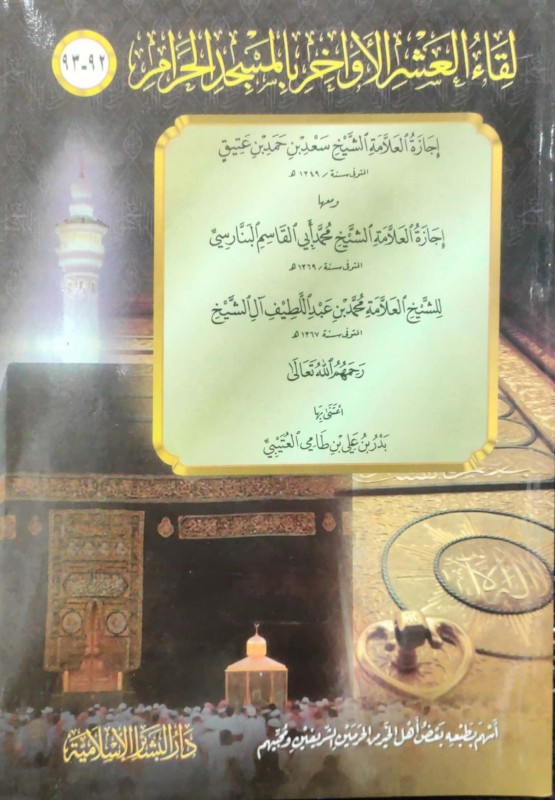 لِقَاءُ العَشْرِ الأَوَاخِرِ بِالمَسْجِدِ الحَرَامِ
٩٢-٩٣
إِجَازَةُ العَلَّامَةِ الشَّيْخِ سَعْدِ بْنِ حَمَدِ بْنِ عَتِيقٍ
المتوفى سنة ١٣٤٩ هـ
ومعها
إِجَازَةُ العَلَّامَةِ الشَّيْخِ مُحَمَّد أَبِي القَاسِمِ البَنَارِسِيِّ
المتوفى سنة ١٣٦٩ هـ
لِلشَّيْخِ العَلَّامَةِ مُحَمَّدِ بْنِ عَبْدِ اللَّطِيفِ آلِ الشَّيْخِ
المتوفى سنة ١٣٦٧ هـ
رَحِمَهُمُ اللهُ تَعَالَى
اعْتَنَى بِهَا
بَدْرُ بْنُ عَلِي بْنِ طَامِي العُتَيْبِيُّ
أَسْهَمَ بِطَبْعِهِ بَعْضُ أَهْلِ الخَيْرِ مِنَ الحَرَمَيْنِ الشَّرِيفَيْنِ وَمُحِبِّيهِم
دَارُ البَشَائِرِ الإِسْلَامِيَّة